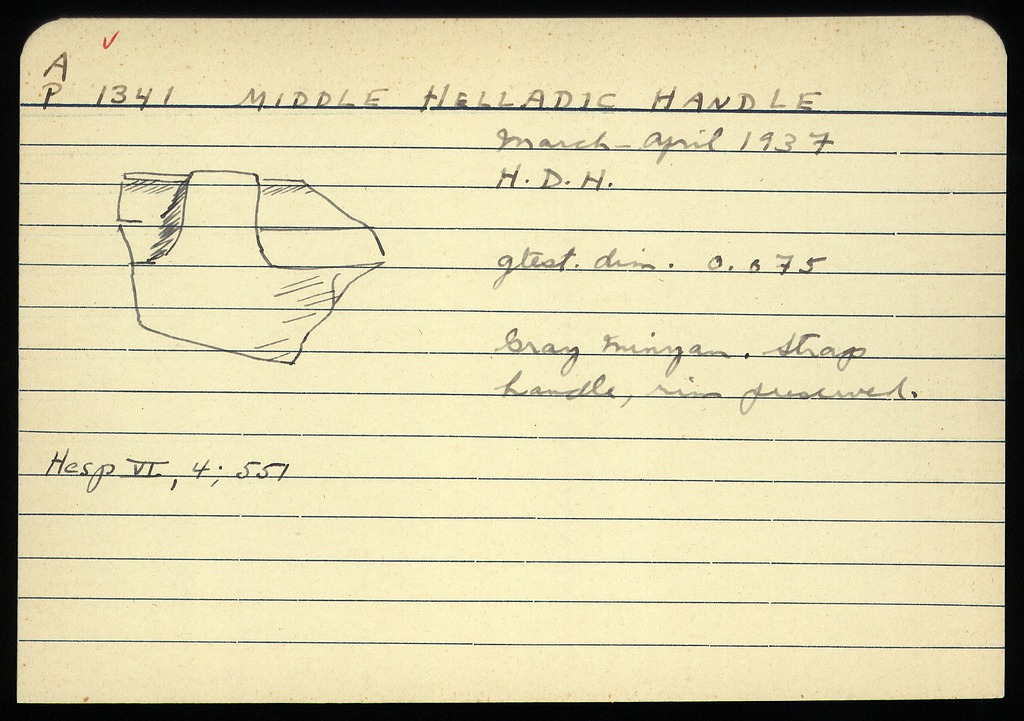 A
P 1341 MIDDLE HELLADIC HANDLE
March-April 1937
H.D.H.
gtest. dim. 0.075
Gray Minyan. Strap
handle, rim preserved.
Hesp VI, 4; 551